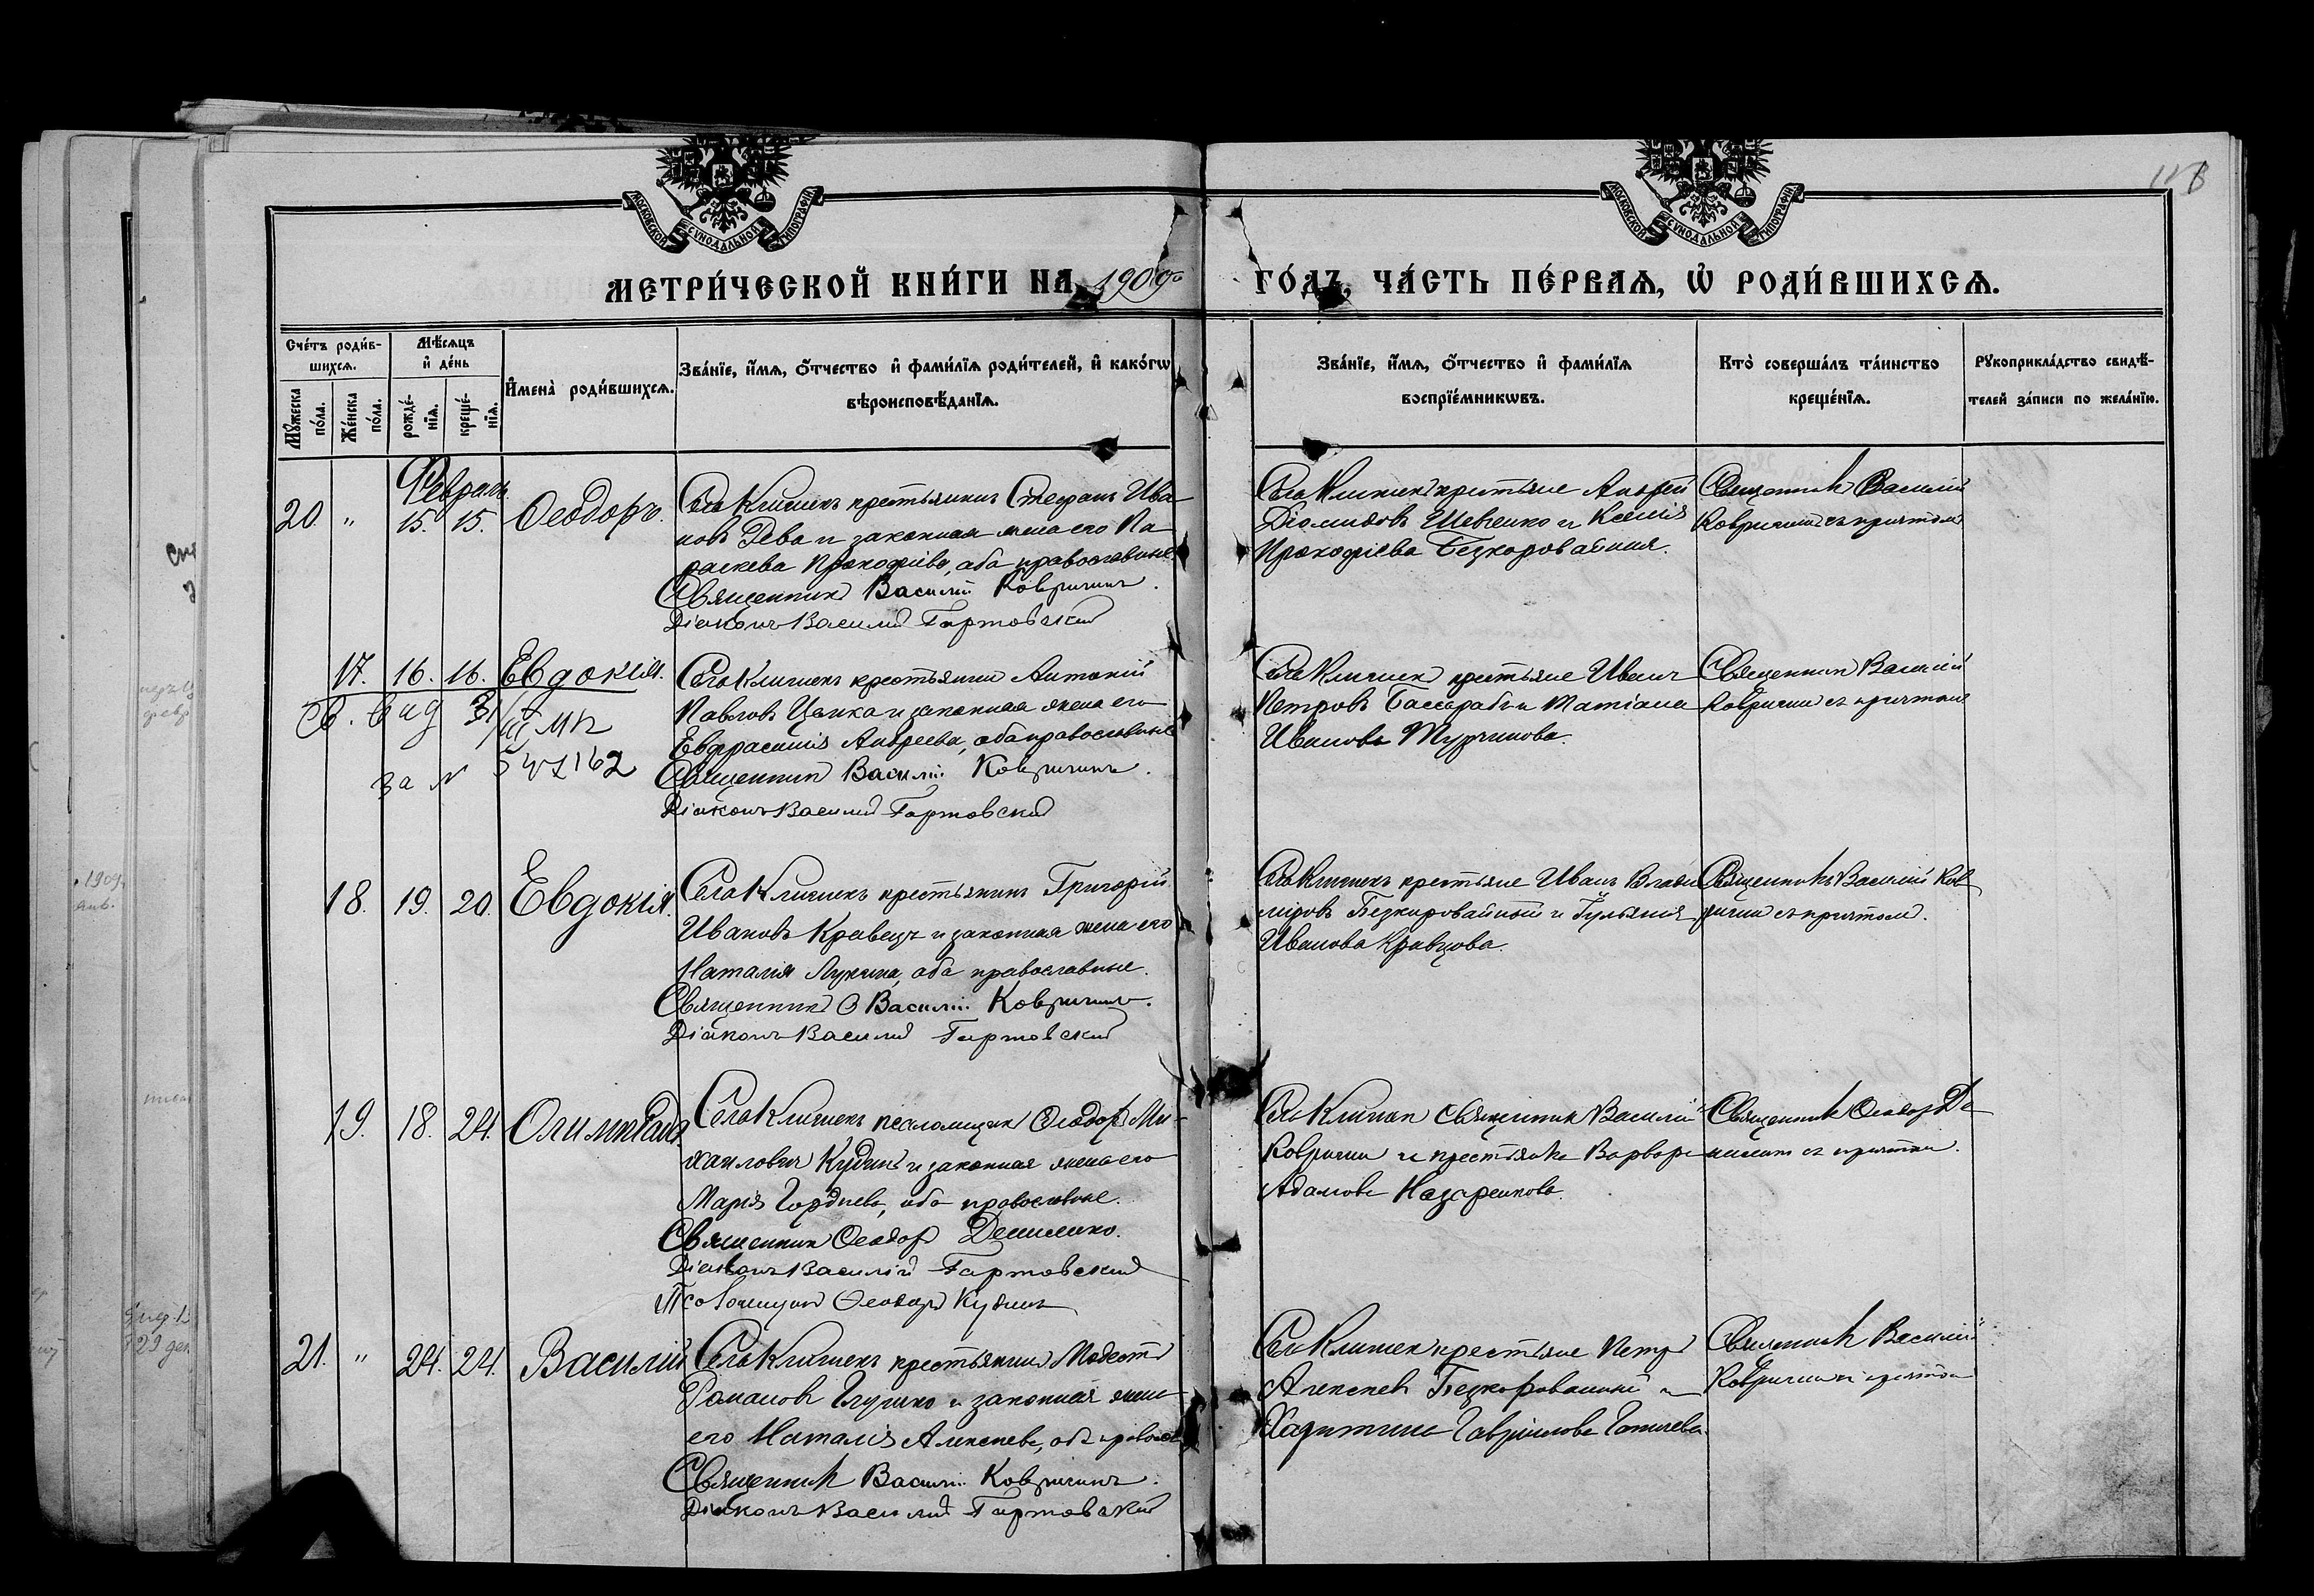 118
МОСКОВСКОЙ СУНОДАЛЬНОЙ ТИПОГРАФІИ
МОСКОВСКОЙ СУНОДАЛЬНОЙ ТИПОГРАФІИ
МЕТРИ́ЧЕСКОЙ КНИ́ГИ НА 1909 ГО́ДЪ, ЧА́СТЬ ПЕ́РВАѦ, Ѡ҆ РОДИ́ВШИХСѦ.
Сче́тъ роди́в-
шихсѧ.
Мꙋ́жеска по́ла.
Же́нска по́ла.
Мѣ́сѧцъ
и҆ де́нь
рожде́-
нїѧ.
креще́-
нїѧ.
И҆мена̀ роди́вшихсѧ.
Зва́нїе, и҆́мѧ, ѻ҆́тчество и҆ фами́лїѧ роди́телей, и҆ како́гѡ
вѣроисповѣ́данїѧ.
Зва́нїе, и҆́мѧ, ѻ҆́тчество и҆ фами́лїѧ
воспрїе́мникѡвъ.
Кто̀ соверша́лъ та́инство
креще́нїѧ.
Рꙋкоприкла́дство свидѣ́-
телей за́писи по жела́нїю.
Февраль
20. " 15. 15. Ѳеодоръ.
Села Клишекъ крестьянинъ Стефанъ Ива-
новъ Дева и законная жена его Па-
раскева Прокофіева, оба православные
Священникъ Василій Ковригинъ.
Діаконъ Василій Гартовскій
Села Клишекъ крестьяне Андрей
Діомидовъ Шевченко и Ксенія
Прокофіева Безкоровайная.
Священникъ Василій
Ковригинъ съ причтомъ
17. 16. 16. Евдокія.
Св. выд 31/III МП
за №
Села Клишекъ крестьянинъ Антоній
Павловъ Цапка и законная жена его
Евфрасинія Андреева, оба православные
Священникъ Василій Ковригинъ.
Діаконъ Василій Гартовскій
Села Клишекъ крестьяне Иванъ
Петровъ Бассарабъ и Татіана
Иванова Турчинова.
Священникъ Василій
Ковригинъ съ причтомъ
18. 19. 20. Евдокія.
Села Клишекъ крестьянинъ Григорій
Ивановъ Кравецъ и законная жена его
Наталія Лукина, оба православные.
Священникъ Василій Ковригинъ.
Діаконъ Василій Гартовскій
Села Клишекъ крестьяне Иванъ Влади-
міровъ Безкоровайный и Гульянія
Иванова Кравцова.
Священникъ Василій Ков-
ригинъ съ причтомъ.
19. 18. 24. Олимпіада
Села Клишекъ псаломщикъ Ѳеодоръ Ми-
хаиловичъ Кудинъ и законная жена его
Марія Гордіева, оба православные.
Священникъ Ѳеодоръ Денисенко.
Діаконъ Василій Гартовскій
Псаломщикъ Ѳеодоръ Кудинъ
Села Клишекъ священникъ Василій
Ковригинъ и крестьянка Варвара
Адамова Назаренкова.
Священникъ Ѳеодоръ Де-
нисенко съ причтомъ.
21. " 24. 24. Василій
Села Клишекъ крестьянинъ Модестъ
Романовъ Глушко и законная жена
его Наталія Алексеева, оба правосл
Священникъ Василій Ковригинъ.
Діаконъ Василій Гартовскій
Села Клишекъ крестьяне Петръ
Алексеевъ Безкоровайный и
Харитина Гавріилова
Священникъ Василій
Ковригинъ съ причтомъ